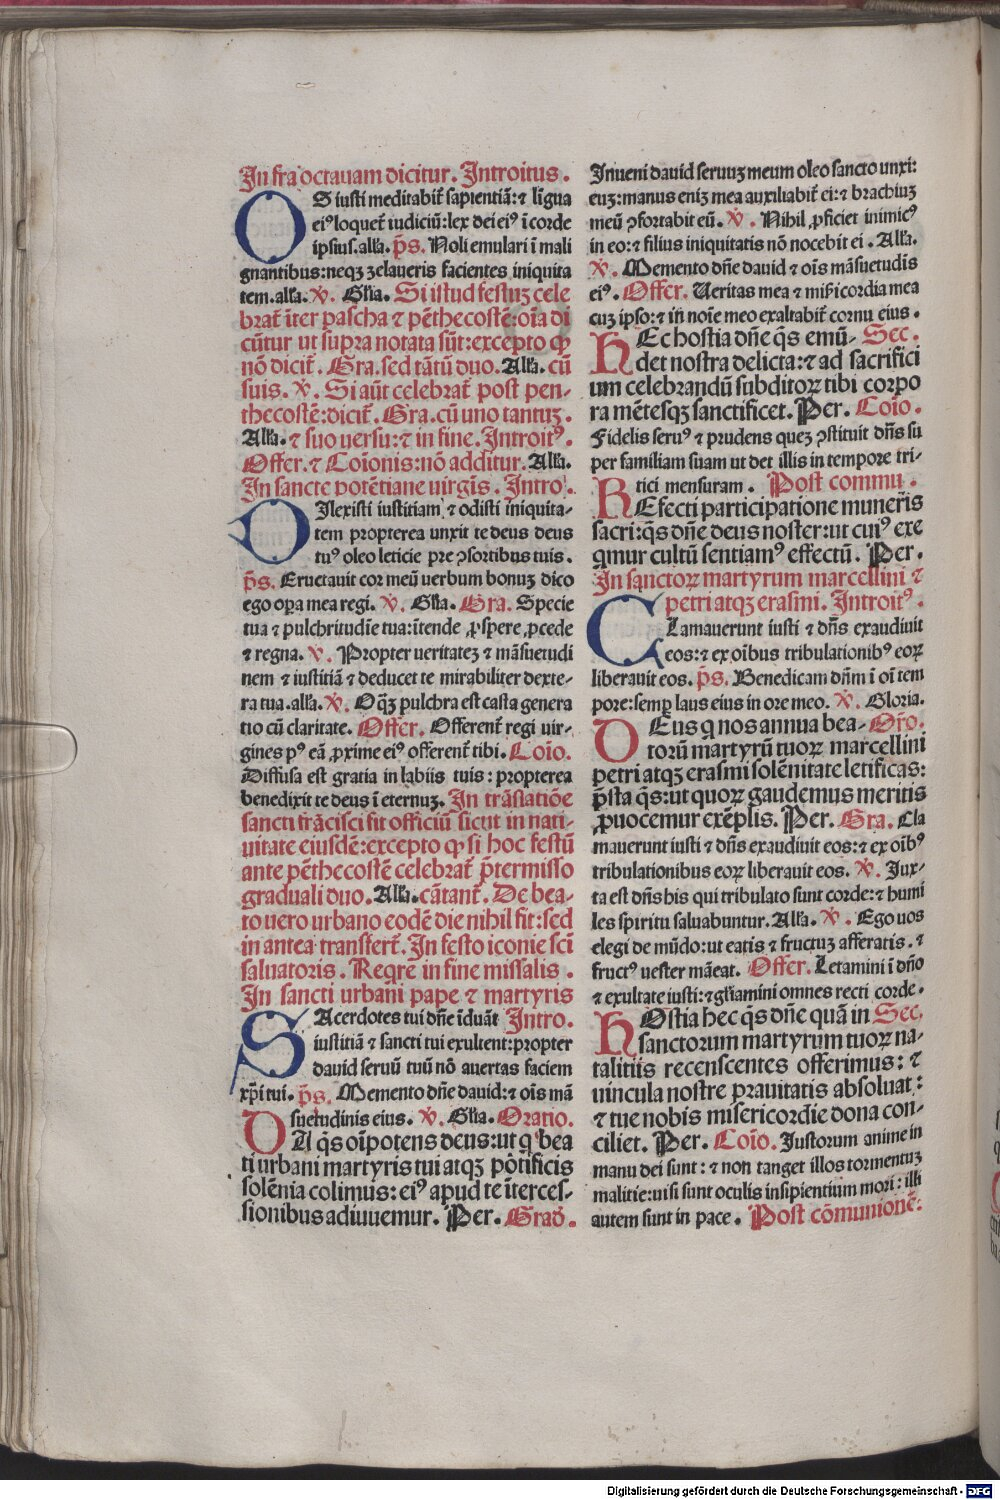 In fra octauam dicitur. Introitus.
OS iusti meditabit̄ sapientiā: ⁊ līgua
eiꝰ loquet̄ iudiciū: lex dei eiꝰ ī corde
ipsius. all'a. p̄s. Noli emulari ī mali
gnantibus: neqꝫ zelaueris facientes iniquita
tem. all'a. ℣. Gl'ia. Si istud festuꝫ cele
brat̄ īter pascha ⁊ pēthecostē: oīa di
cūtur ut supra notata sūt: excepto ꝙ
nō dicit̄. Gra. sed tātū duo. All'a. cū
suis. ℣. Si aūt celebrat̄ post pen-
thecostē: dicit̄. Gra. cū uno tantuꝫ.
All'a. ⁊ suo uersu: ⁊ in fine. Introitꝰ.
Offer. ⁊ Cōionis: nō additur. All'a.
In sancte potētiane uirgīs. Intro.
DIlexisti iustitiam ⁊ odisti iniquita-
tem propterea unxit te deus deus
tuꝰ oleo leticie pre ꝯsortibus tuis.
p̄s. Eructauit cor meū uerbum bonuꝫ dico
ego oꝑa mea regi. ℣. Gl'ia. Gra. Specie
tua ⁊ pulchritudīe tua: ītende ꝓspere ꝓcede
⁊ regna. ℣. Propter ueritateꝫ ⁊ māsuetudi
nem ⁊ iustitiā ⁊ deducet te mirabiliter dexte-
ra tua. all'a. ℣. O qꝫ̄ pulchra est casta genera
tio cū claritate. Offer. Offerent̄ regi uir-
gines pꝰ eā ꝓxime eiꝰ offerent̄ tibi. Cōio.
Diffusa est gratia in labiis tuis: propterea
benedixit te deus ī eternuꝫ. In trāslatiōe
sancti frācisci fit officiū sicut in nati-
uitate eiusdē: excepto ꝙ si hoc festū
ante pēthecostē celebrat̄ p̄termisso
graduali duo. All'a. cātant̄. De bea-
to uero urbano eodē die nihil fit: sed
in antea transfert̄. In festo iconie sc̄i
saluatoris. Reqr̄e in fine missalis.
In sancti urbani pape ⁊ martyris
SAcerdotes tui dn̄e īduāt Intro.
iustitiā ⁊ sancti tui exultent: propter
dauid seruū tuū nō auertas faciem
xp̄i tui. p̄s. Memento dn̄e dauid: ⁊ oīs mā
suetudinis eius. ℣. Gl'ia. Oratio.
DA q̄s oīpotens deus: ut q̇ bea
ti urbani martyris tui atqꝫ pōtificis
solēnia colimus: eiꝰ apud te īterces-
sionibus adiuuemur. Per. Grad'.
Inueni dauid seruuꝫ meum oleo sancto unxi:
euꝫ: manus eniꝫ mea auxiliabit̄ ei: ⁊ brachiuꝫ
meū ꝯfortabit eū. ℣. Nihil ꝓficiet inimicꝰ
in eo: ⁊ filius iniquitatis nō nocebit ei. All'a.
℣. Memento dn̄e dauid ⁊ oīs māsuetudīs
eiꝰ. Offer. Ueritas mea ⁊ mīs̄icordia mea
cuꝫ ipso: ⁊ in noīe meo exaltabit̄ cornu eius.
HEc hostia dn̄e q̄s emū- Sec.
det nostra delicta: ⁊ ad sacrifici
um celebrandū subditoꝝ tibi corpo
ra mētesqꝫ sanctificet. Per. Cōio.
Fidelis seruꝰ ⁊ prudens queꝫ ꝯstituit dn̄s su
per familiam suam ut det illis in tempore tri-
tici mensuram. Post commu.
REfecti participatione muneris
sacri: q̄s dn̄e deus noster: ut cuiꝰ exe
qmur cultū sentiamꝰ effectū. Per.
In sanctoꝝ martyrum marcellini ⁊
petri atqꝫ erasmi. Introitꝰ.
CLamauerunt iusti ⁊ dn̄s exaudiuit
eos: ⁊ ex oībus tribulationibꝰ eoꝝ
liberauit eos. p̄s. Benedicam dn̄m ī oī tem
pore: semꝑ laus eius in ore meo. ℣. Gloria.
DEus q̇ nos annua bea- Or̄o.
torū martyrū tuoꝝ marcellini
petri atqꝫ erasmi solēnitate letificas:
p̄sta q̄s: ut quoꝝ gaudemus meritis
ꝓuocemur exēplis. Per. Gra. Cla
mauerunt iusti ⁊ dn̄s exaudiuit eos: ⁊ ex oībꝰ
tribulationibus eoꝝ liberauit eos. ℣. Iux-
ta est dn̄s his qui tribulato sunt corde: ⁊ humi
les spiritu saluabuntur. All'a. ℣. Ego uos
elegi de mūdo: ut eatis ⁊ fructuꝫ afferatis. ⁊
fructꝰ uester māeat. Offer. Letamini ī dn̄o
⁊ exultate iusti: ⁊ gl'iamini omnes recti corde.
HOstia hec q̄s dn̄e quā in Sec.
sanctorum martyrum tuoꝝ na-
talitiis recenscentes offerimus: ⁊
uincula nostre prauitatis absoluat:
⁊ tue nobis misericordie dona con-
ciliet. Per. Cōio. Iustorum anime in
manu dei sunt: ⁊ non tanget illos tormentuꝫ
malitie: uisi sunt oculis insipientium mori: illi
autem sunt in pace. Post cōmunionē:
Digitalisierung gefördert durch die Deutsche Forschungsgemeinschaft - DFG